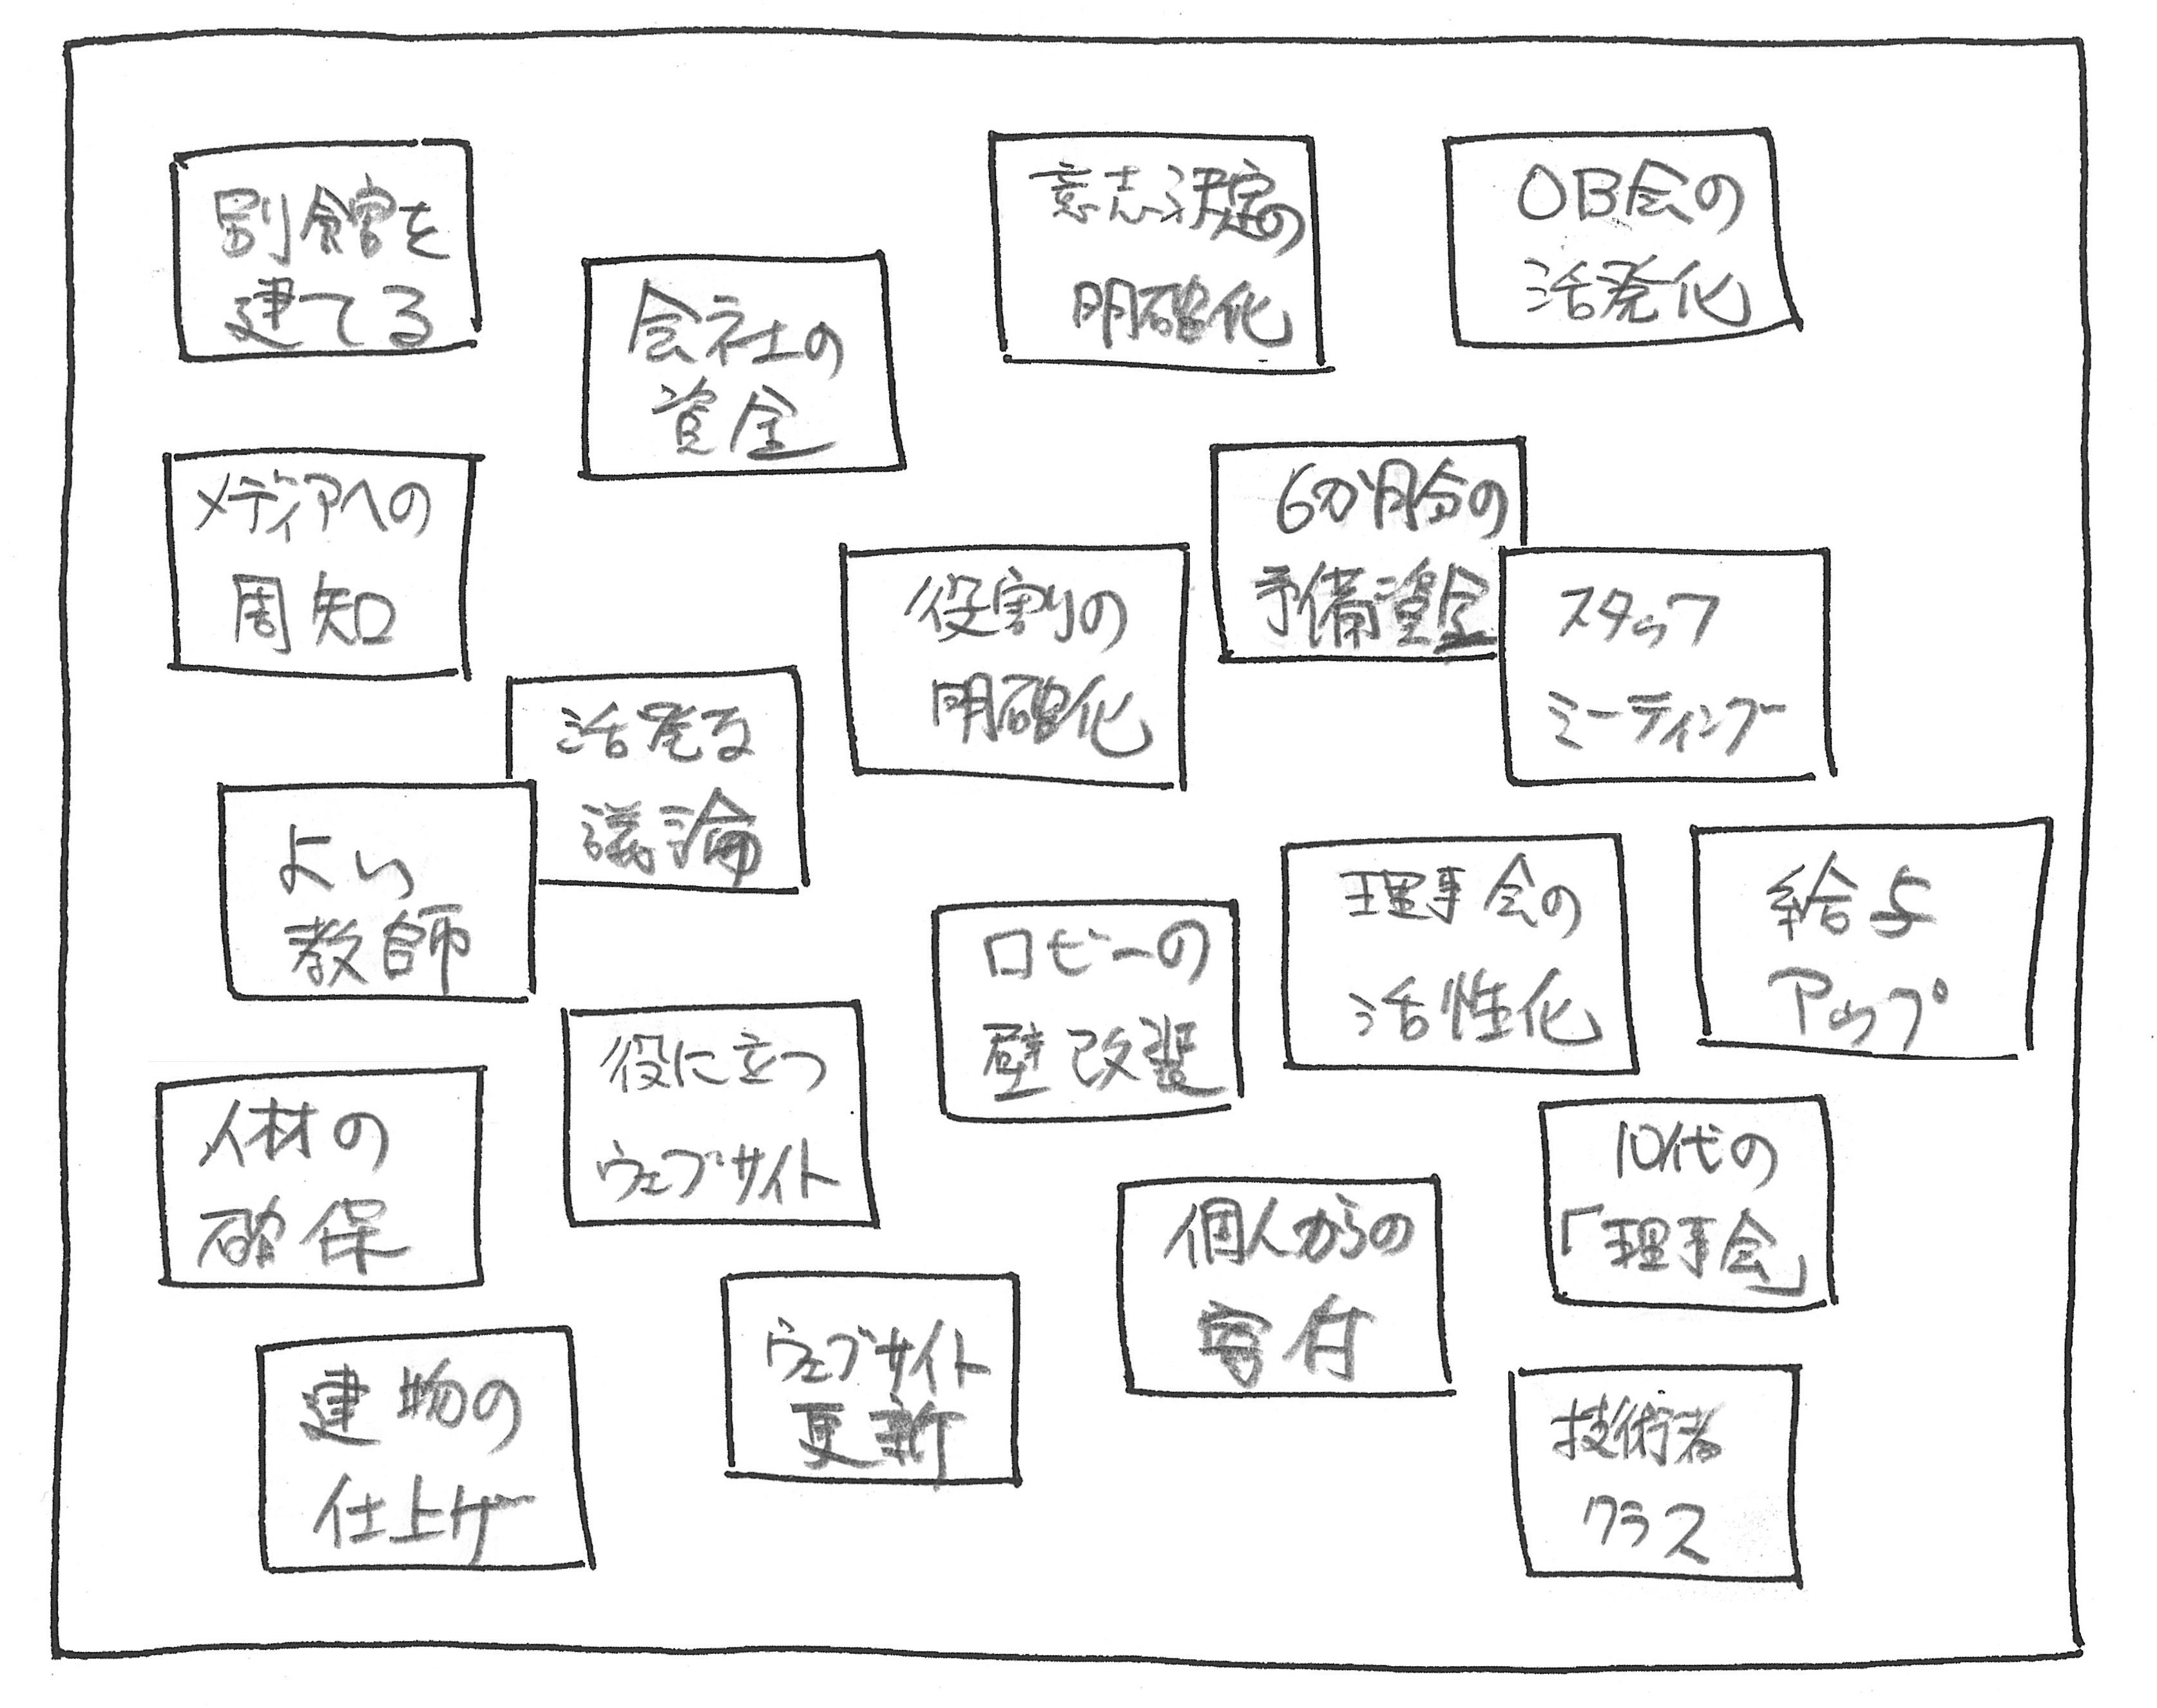 別館を
建てる
会社の
資金
意志決定の
明確化
OB会の
活発化
メディアへの
周知
役割りの
明確化
6か月分の
予備資金
スタッフ
ミーティング
活発な
議論
よい
教師
ロビーの
壁改装
理事会の
活性化
給与
アップ
人材の
確保
役に立つ
ウェブサイト
個人からの
寄付
10代の
「理事会」
建物の
仕上げ
ウェブサイト
更新
技術者
クラス